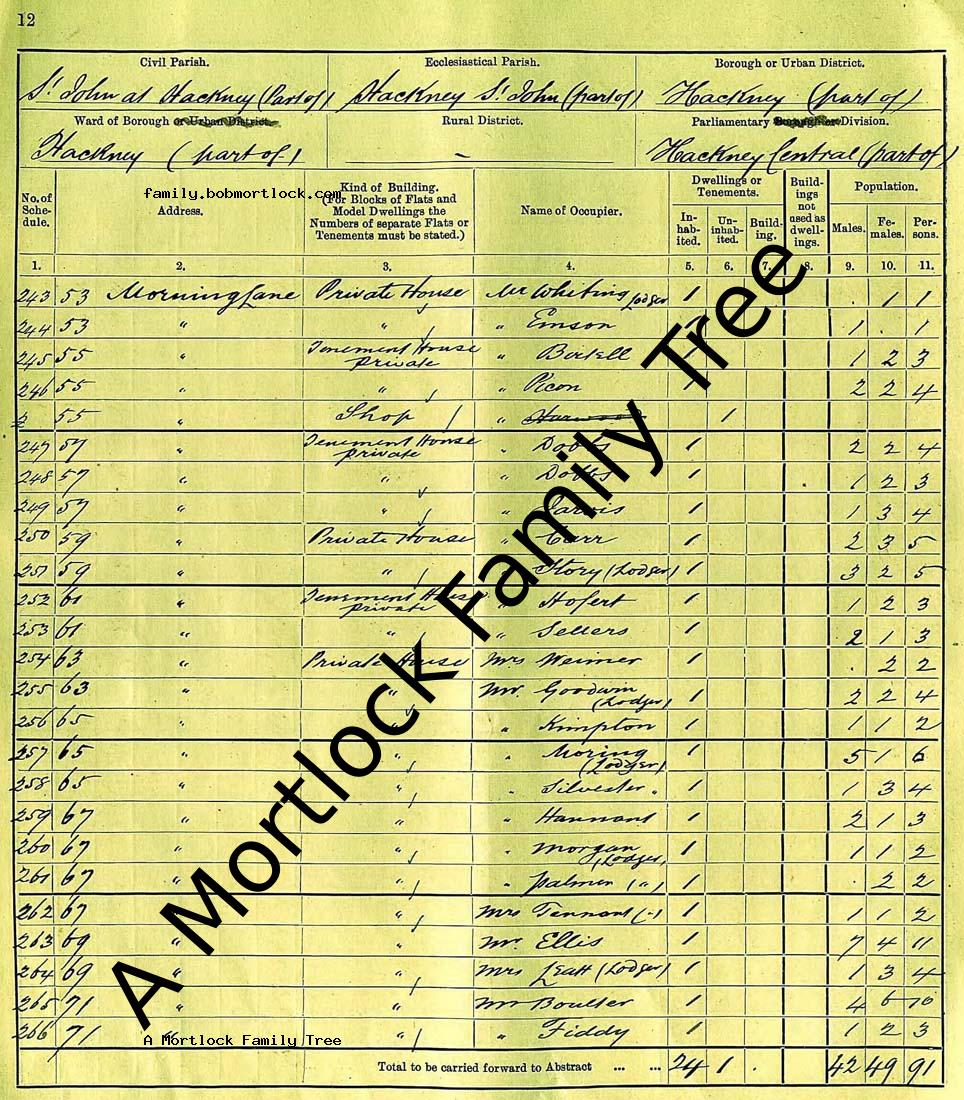 12
Civil Parish. Ecclesiastical Parish. Borough or Urban District.
St John at Hackney (Part of) Hackney St John (part of) Hackney (part of)
Ward of Borough or Urban District. Rural District. Parliamentary Borough or Division.
Hackney (part of) – Hackney Central (part of)
No. of Schedule. Address. Kind of Building. (For Blocks of Flats and Model Dwellings the Numbers of separate Flats or Tenements must be stated.) Name of Occupier. Dwellings or Tenements. Inhabited. Uninhabited. Building. Buildings not used as dwellings. Population. Males. Females. Persons.
family.bobmortlock.com
1. 2. 3. 4. 5. 6. 7. 8. 9. 10. 11.
243 53 Morning Lane Private House Mr Whiting Lodger 1 . 1 1
244 53 " " " Emson 1 . 1
245 55 " Tenement House private " 1 2 3
246 55 " " " Picon 2 2 4
55 " Shop " 1
247 57 " Tenement House private " Dobbs 1 2 2 4
248 57 " " " Dobbs 1 1 2 3
249 57 " " " Jarvis 1 1 3 4
250 59 " Private House " Carr 1 2 3 5
251 59 " " Story (Lodger) 1 3 2 5
252 61 " Tenement House private " Hofert 1 1 2 3
253 61 " " " Sellers 1 2 1 3
254 63 " Private House Mrs Weimer 1 . 2 2
255 63 " " Mr. Goodwin (Lodger) 1 2 2 4
256 65 " " " Kimpton 1 1 1 2
257 65 " " " Moring (Lodger) 1 5 1 6
258 65 " " " Silvester " 1 1 3 4
259 67 " " " Hannant 1 2 1 3
260 67 " " " Morgan (Lodger) 1 1 1 2
261 67 " " " Palmer (") 1 . 2 2
262 67 " Mrs Tennant (") 1 1 1 2
263 69 " " Mr. Ellis 1 7 4 11
264 69 " " Mrs Leatt (Lodger) 1 1 3 4
265 71 " " Mr Boulter 1 4 6 10
266 71 " " " Fiddy 1 1 2 3
Total to be carried forward to Abstract ... ... 24 1 . 42 49 91
A Mortlock Family Tree
A Mortlock Family Tree